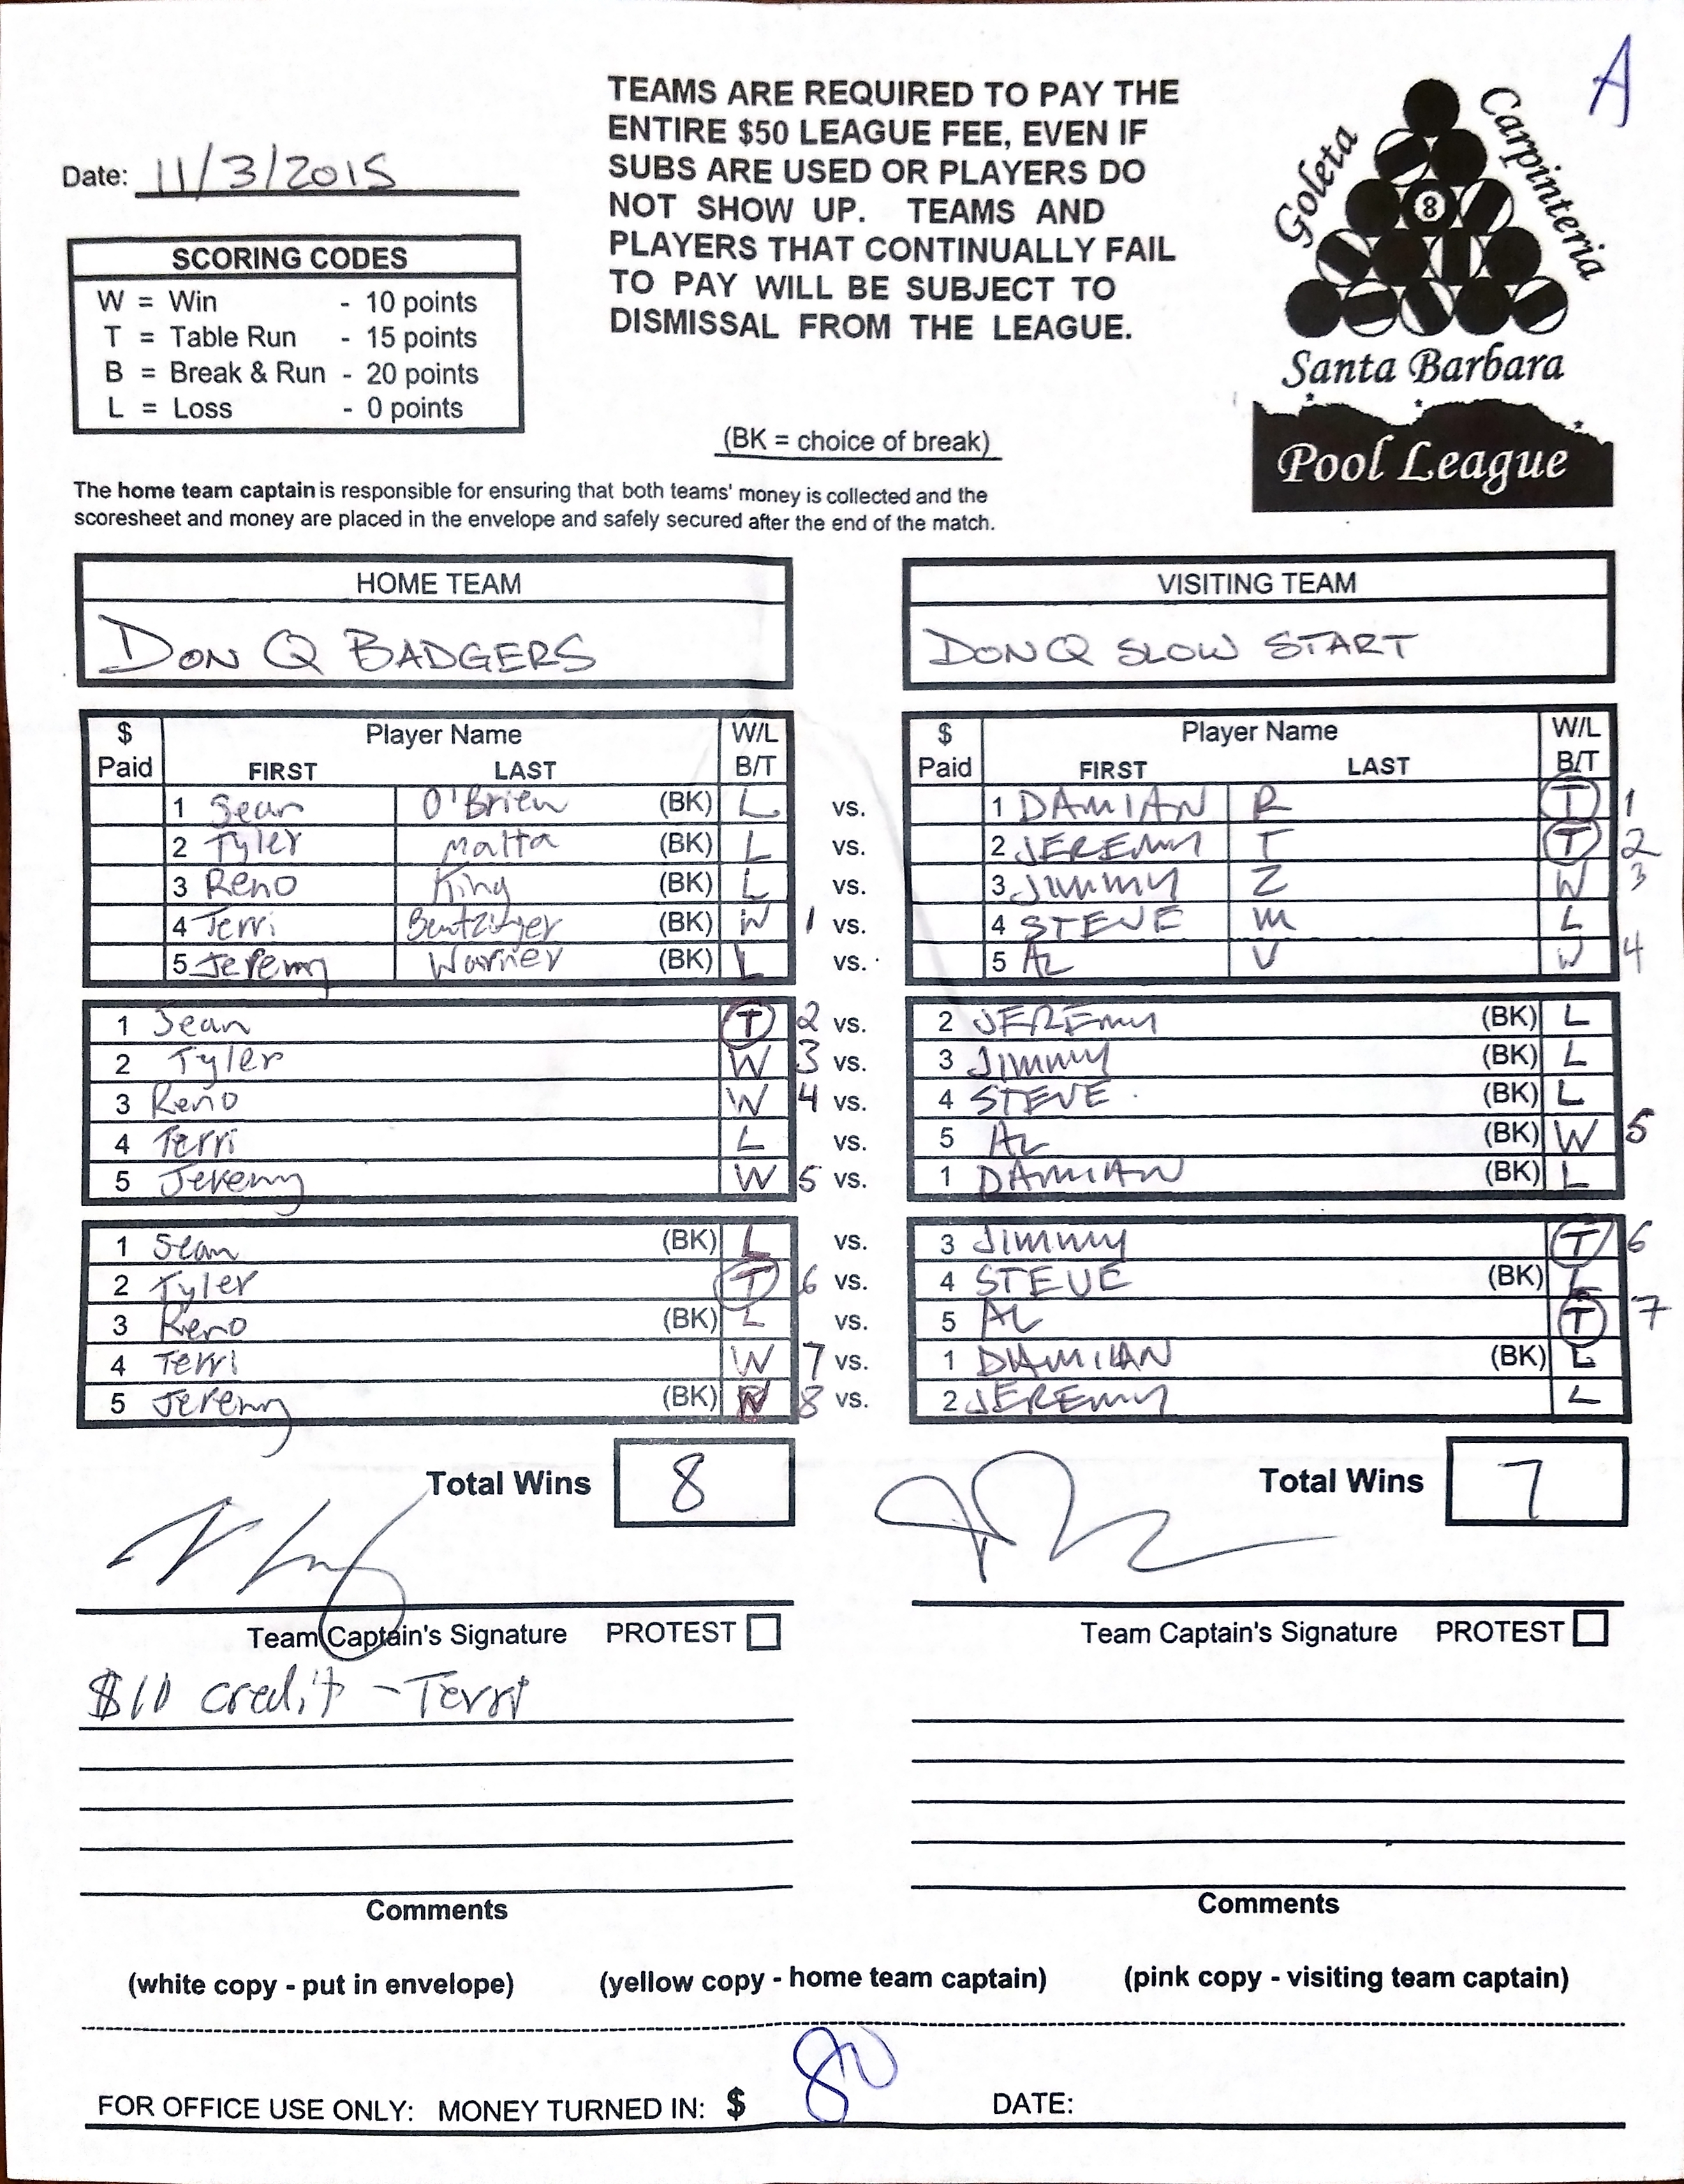 A
Date: 11/3/2015
TEAMS ARE REQUIRED TO PAY THE
ENTIRE $50 LEAGUE FEE, EVEN IF
SUBS ARE USED OR PLAYERS DO
NOT SHOW UP. TEAMS AND
PLAYERS THAT CONTINUALLY FAIL
TO PAY WILL BE SUBJECT TO
DISMISSAL FROM THE LEAGUE.
Goleta
Carpinteria
8
Santa Barbara
Pool League
SCORING CODES
W = Win - 10 points
T = Table Run - 15 points
B = Break & Run - 20 points
L = Loss - 0 points
(BK = choice of break)
The home team captain is responsible for ensuring that both teams' money is collected and the
scoresheet and money are placed in the envelope and safely secured after the end of the match.
HOME TEAM VISITING TEAM
DON Q BADGERS DON Q SLOW START
$ Player Name W/L $ Player Name W/L
Paid FIRST LAST B/T Paid FIRST LAST B/T
1 Sean O'Brien (BK) L vs. 1 DAMIAN R T 1
2 Tyler Malta (BK) L vs. 2 JEREMY T T 2
3 Reno King (BK) L vs. 3 JIMMY Z W 3
4 Terri Bentzinger (BK) W 1 vs. 4 STEVE M L
5 Jeremy Warner (BK) L vs. 5 AL V W 4
1 Sean T 2 vs. 2 JEREMY (BK) L
2 Tyler W 3 vs. 3 JIMMY (BK) L
3 Reno W 4 vs. 4 STEVE (BK) L
4 Terri L vs. 5 AL (BK) W 5
5 Jeremy W 5 vs. 1 DAMIAN (BK) L
1 Sean (BK) L vs. 3 JIMMY T 6
2 Tyler T 6 vs. 4 STEVE (BK) L
3 Reno (BK) L vs. 5 AL T 7
4 Terri W 7 vs. 1 DAMIAN (BK) L
5 Jeremy (BK) W 8 vs. 2 JEREMY L
Total Wins 8 Total Wins 7
Team Captain's Signature PROTEST Team Captain's Signature PROTEST
$10 credit - Terri
Comments Comments
(white copy - put in envelope) (yellow copy - home team captain) (pink copy - visiting team captain)
FOR OFFICE USE ONLY: MONEY TURNED IN: $ 80 DATE: